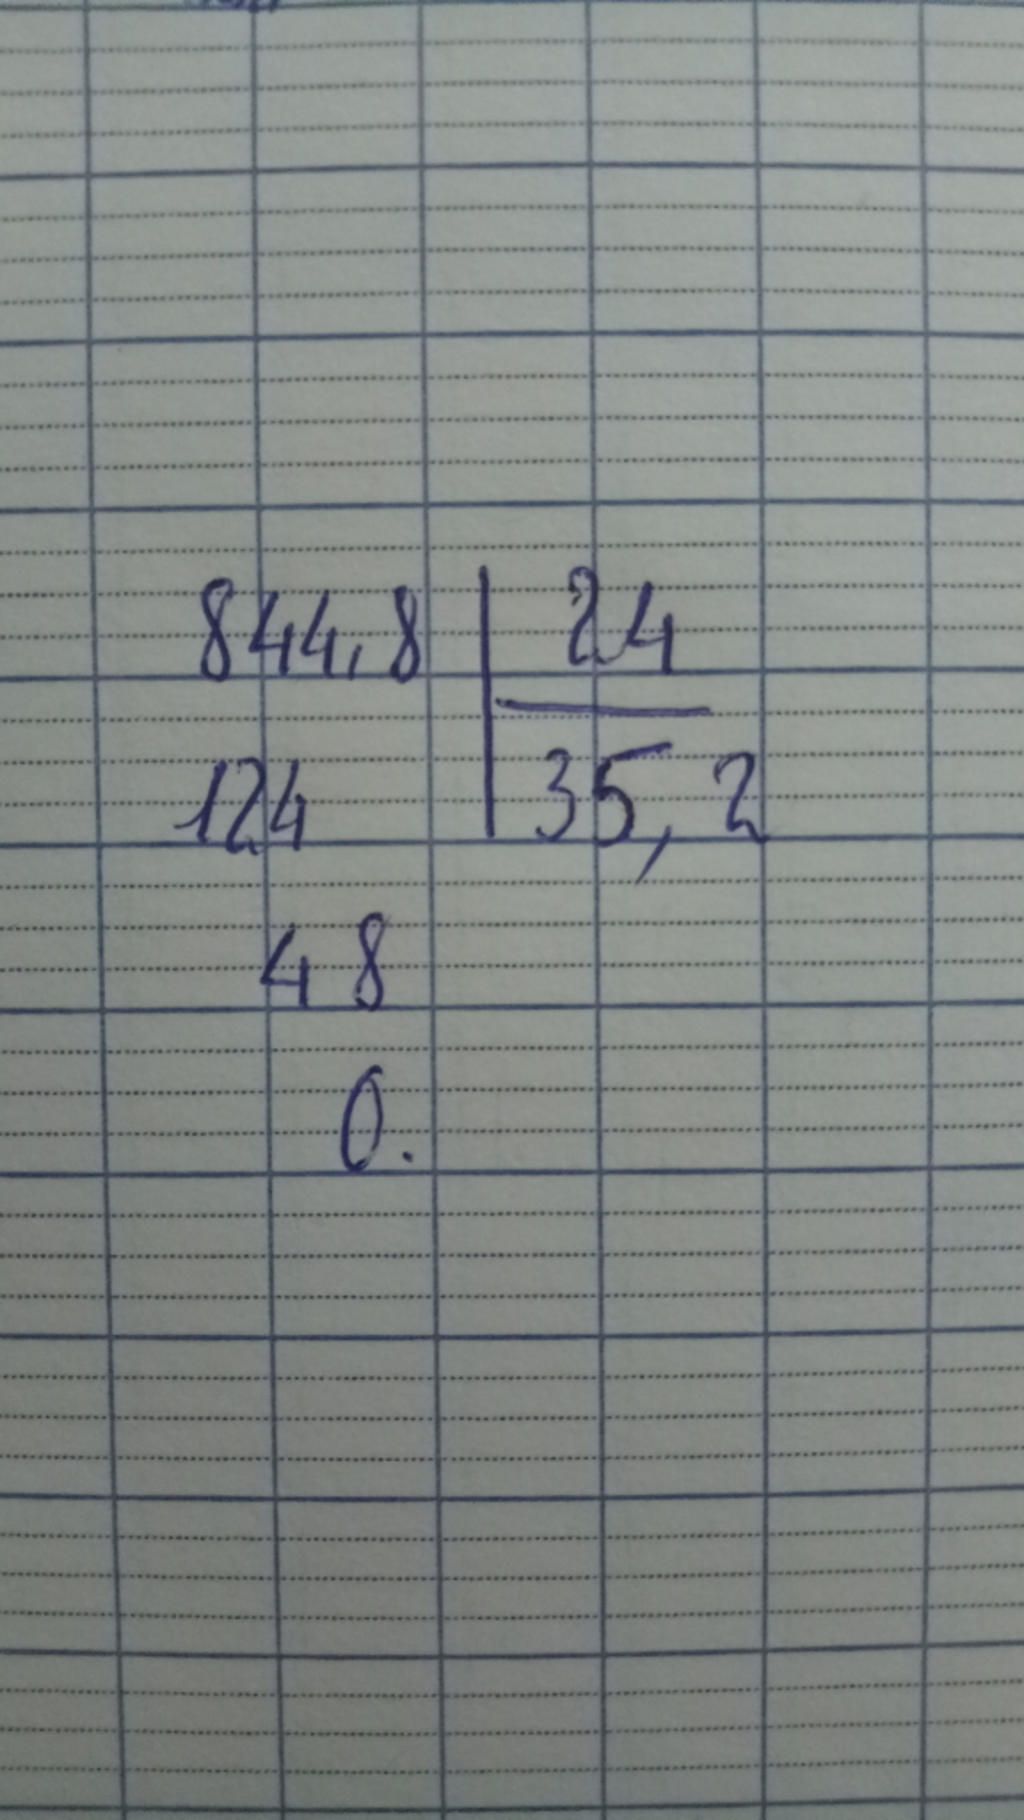 844,8 24
124 35,2
48
0.